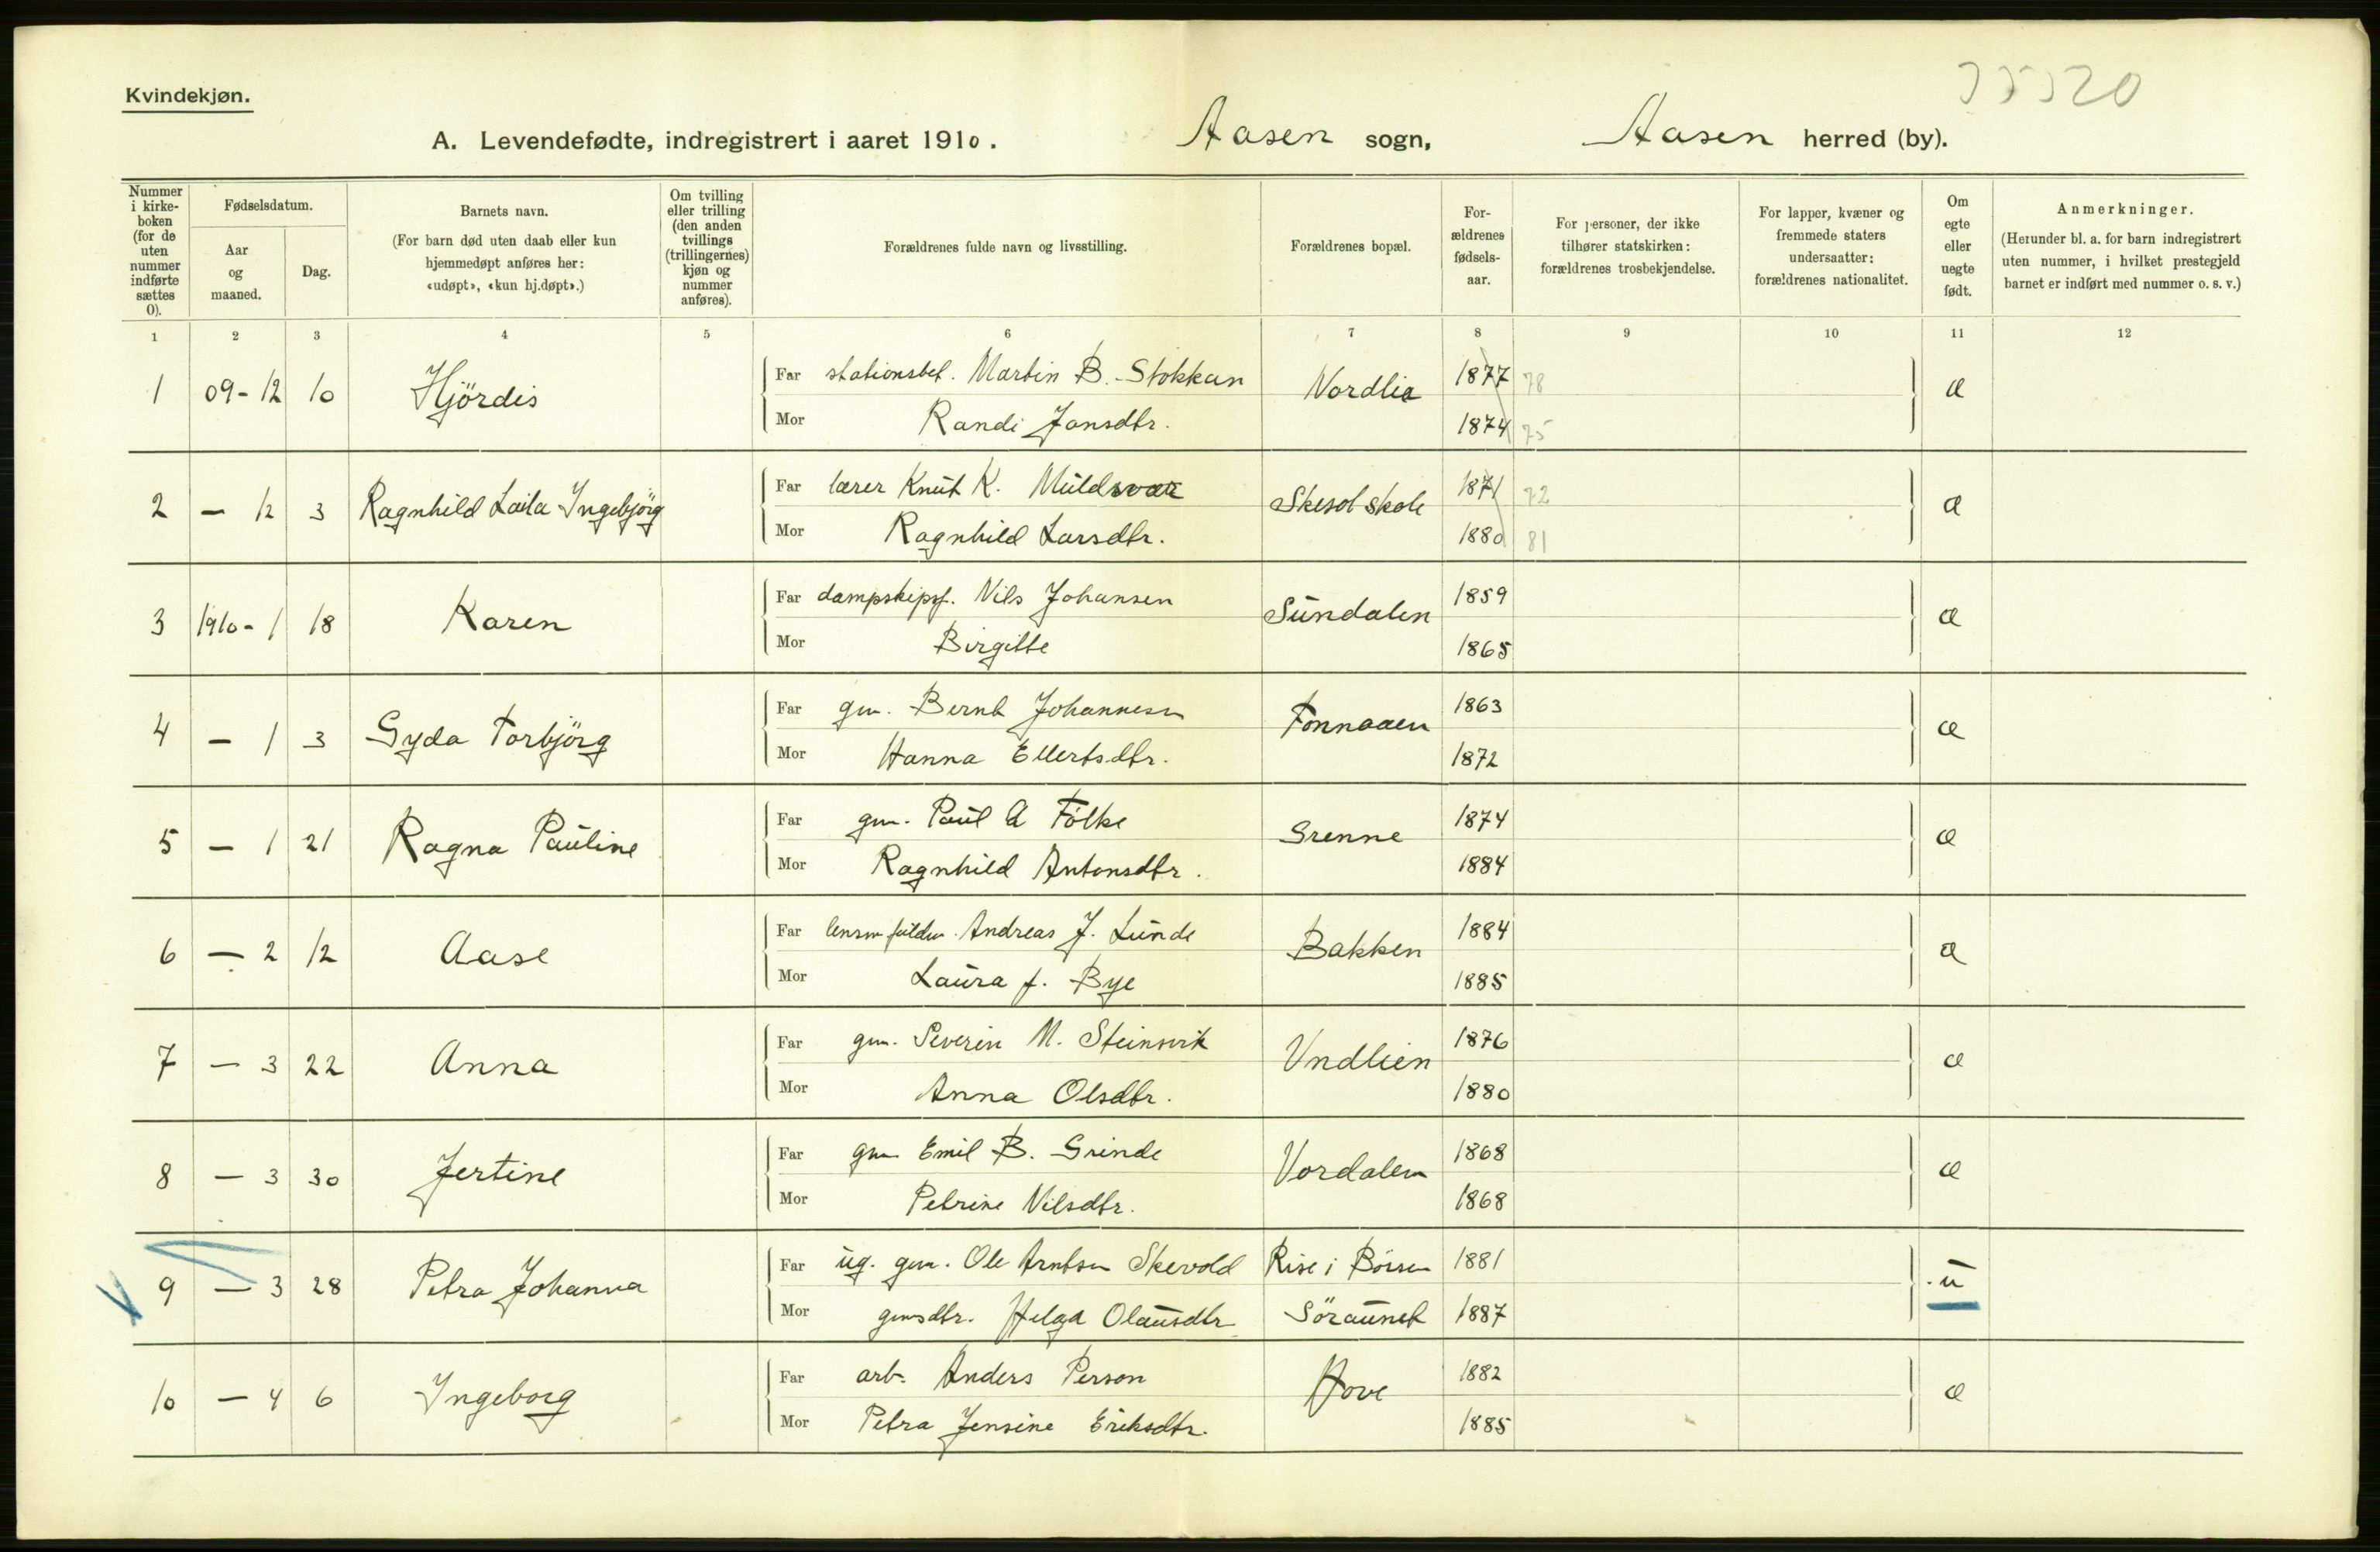 Kvindekjøn.
A. Levendefødte, indregistrert i aaret 1910. Aasen sogn, Aasen herred (by).
Nummer i kirke-boken (for de uten nummer indførte sættes 0).
Fødselsdatum.
Aar og maaned.
Dag.
Barnets navn.
(For barn død uten daab eller kun hjemmedøpt anføres her: «udøpt», «kun hj.døpt».)
Om tvilling eller trilling (den anden tvillings (trillingernes) kjøn og nummer anføres).
Forældrenes fulde navn og livsstilling.
Forældrenes bopæl.
For-ældrenes fødsels-aar.
For personer, der ikke tilhører statskirken: forældrenes trosbekjendelse.
For lapper, kvæner og fremmede staters undersaatter: forældrenes nationalitet.
Om egte eller uegte født.
Anmerkninger.
(Herunder bl. a. for barn indregistrert uten nummer, i hvilket prestegjeld barnet er indført med nummer o. s. v.)
1 2 3 4 5 6 7 8 9 10 11 12
1 09-12 10 Hjördis Far stationsbet. Martin B. Stokkan Nordlia 1877 78 æ
Mor Randi Jonsdtr. 1874 75
2 — 12 3 Ragnhild Laila Ingebjörg Far lærer Knut K. Skesol skole 1871 72 æ
Mor Ragnhild Larsdtr. 1880 81
3 1910-1 18 Karen Far dampskipsf. Nils Johansen Sundalen 1859 æ
Mor Birgitte 1865
4 — 1 3 Gyda Torbjörg Far gm. Bernt Johannesen Fonnaaen 1863 æ
Mor Hanna Ellertsdtr. 1872
5 — 1 21 Ragna Pauline Far gm. Paul A Folke Grenne 1874 æ
Mor Ragnhild Antonsdtr. 1884
6 — 2 12 Aase Far Andreas J. Lunde Bakken 1884 æ
Mor Laura f. Bye 1885
7 — 3 22 Anna Far gm. Severin M. Steinsvik Vndlien 1876 æ
Mor Anna Olsdtr. 1880
8 — 3 30 Jertine Far gm Emil B. Grinde Vordalen 1868 æ
Mor Petrine Nilsdtr. 1868
9 — 3 28 Petra Johanna Far ug. gm. Ole Arntsen Skevold Rise i Börsen 1881 u
Mor gmsdtr. Helga Olausdtr Söraunet 1887
10 — 4 6 Ingeborg Far arb. Anders Person Hove 1882 æ
Mor Petra Jensine Eriksdtr. 1885